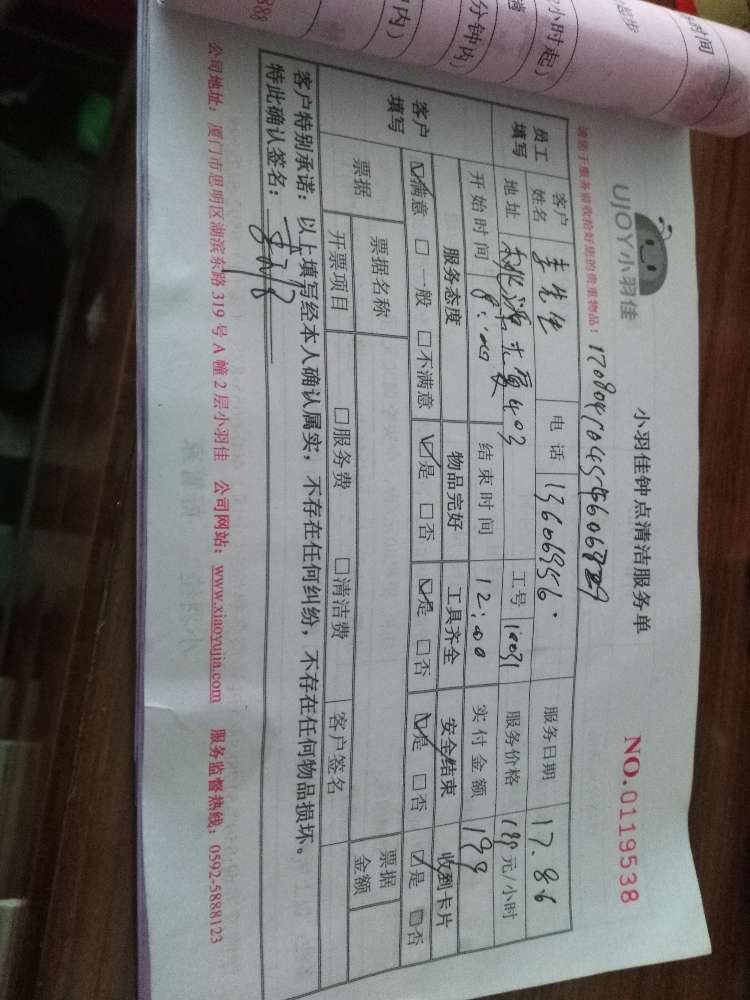 888
内)
分钟内)
小时起)
时间
UJOY小羽佳
小羽佳钟点清洁服务单
NO.0119538
请您于服务前收拾好您的贵重物品!
员工填写
客户姓名 李先生 电话 13606956. 服务日期 17.8.6
地址 403 工号 10031 服务价格 199元/小时
开始时间 8:00 结束时间 12:00 实付金额 199
客户填写
服务态度 物品完好 工具齐全 安全结束 收到卡片
☑满意 □一般 □不满意 ☑是 □否 ☑是 □否 ☑是 □否 ☑是 □否
票据 票据名称 票据金额
开票项目 □服务费 □清洁费 客户签名
客户特别承诺:以上填写经本人确认属实,不存在任何纠纷,不存在任何物品损坏。
特此确认签名:
公司地址:厦门市思明区湖滨东路319号A幢2层小羽佳 公司网站:www.xiaoyujia.com 服务监督热线:0592-5888123